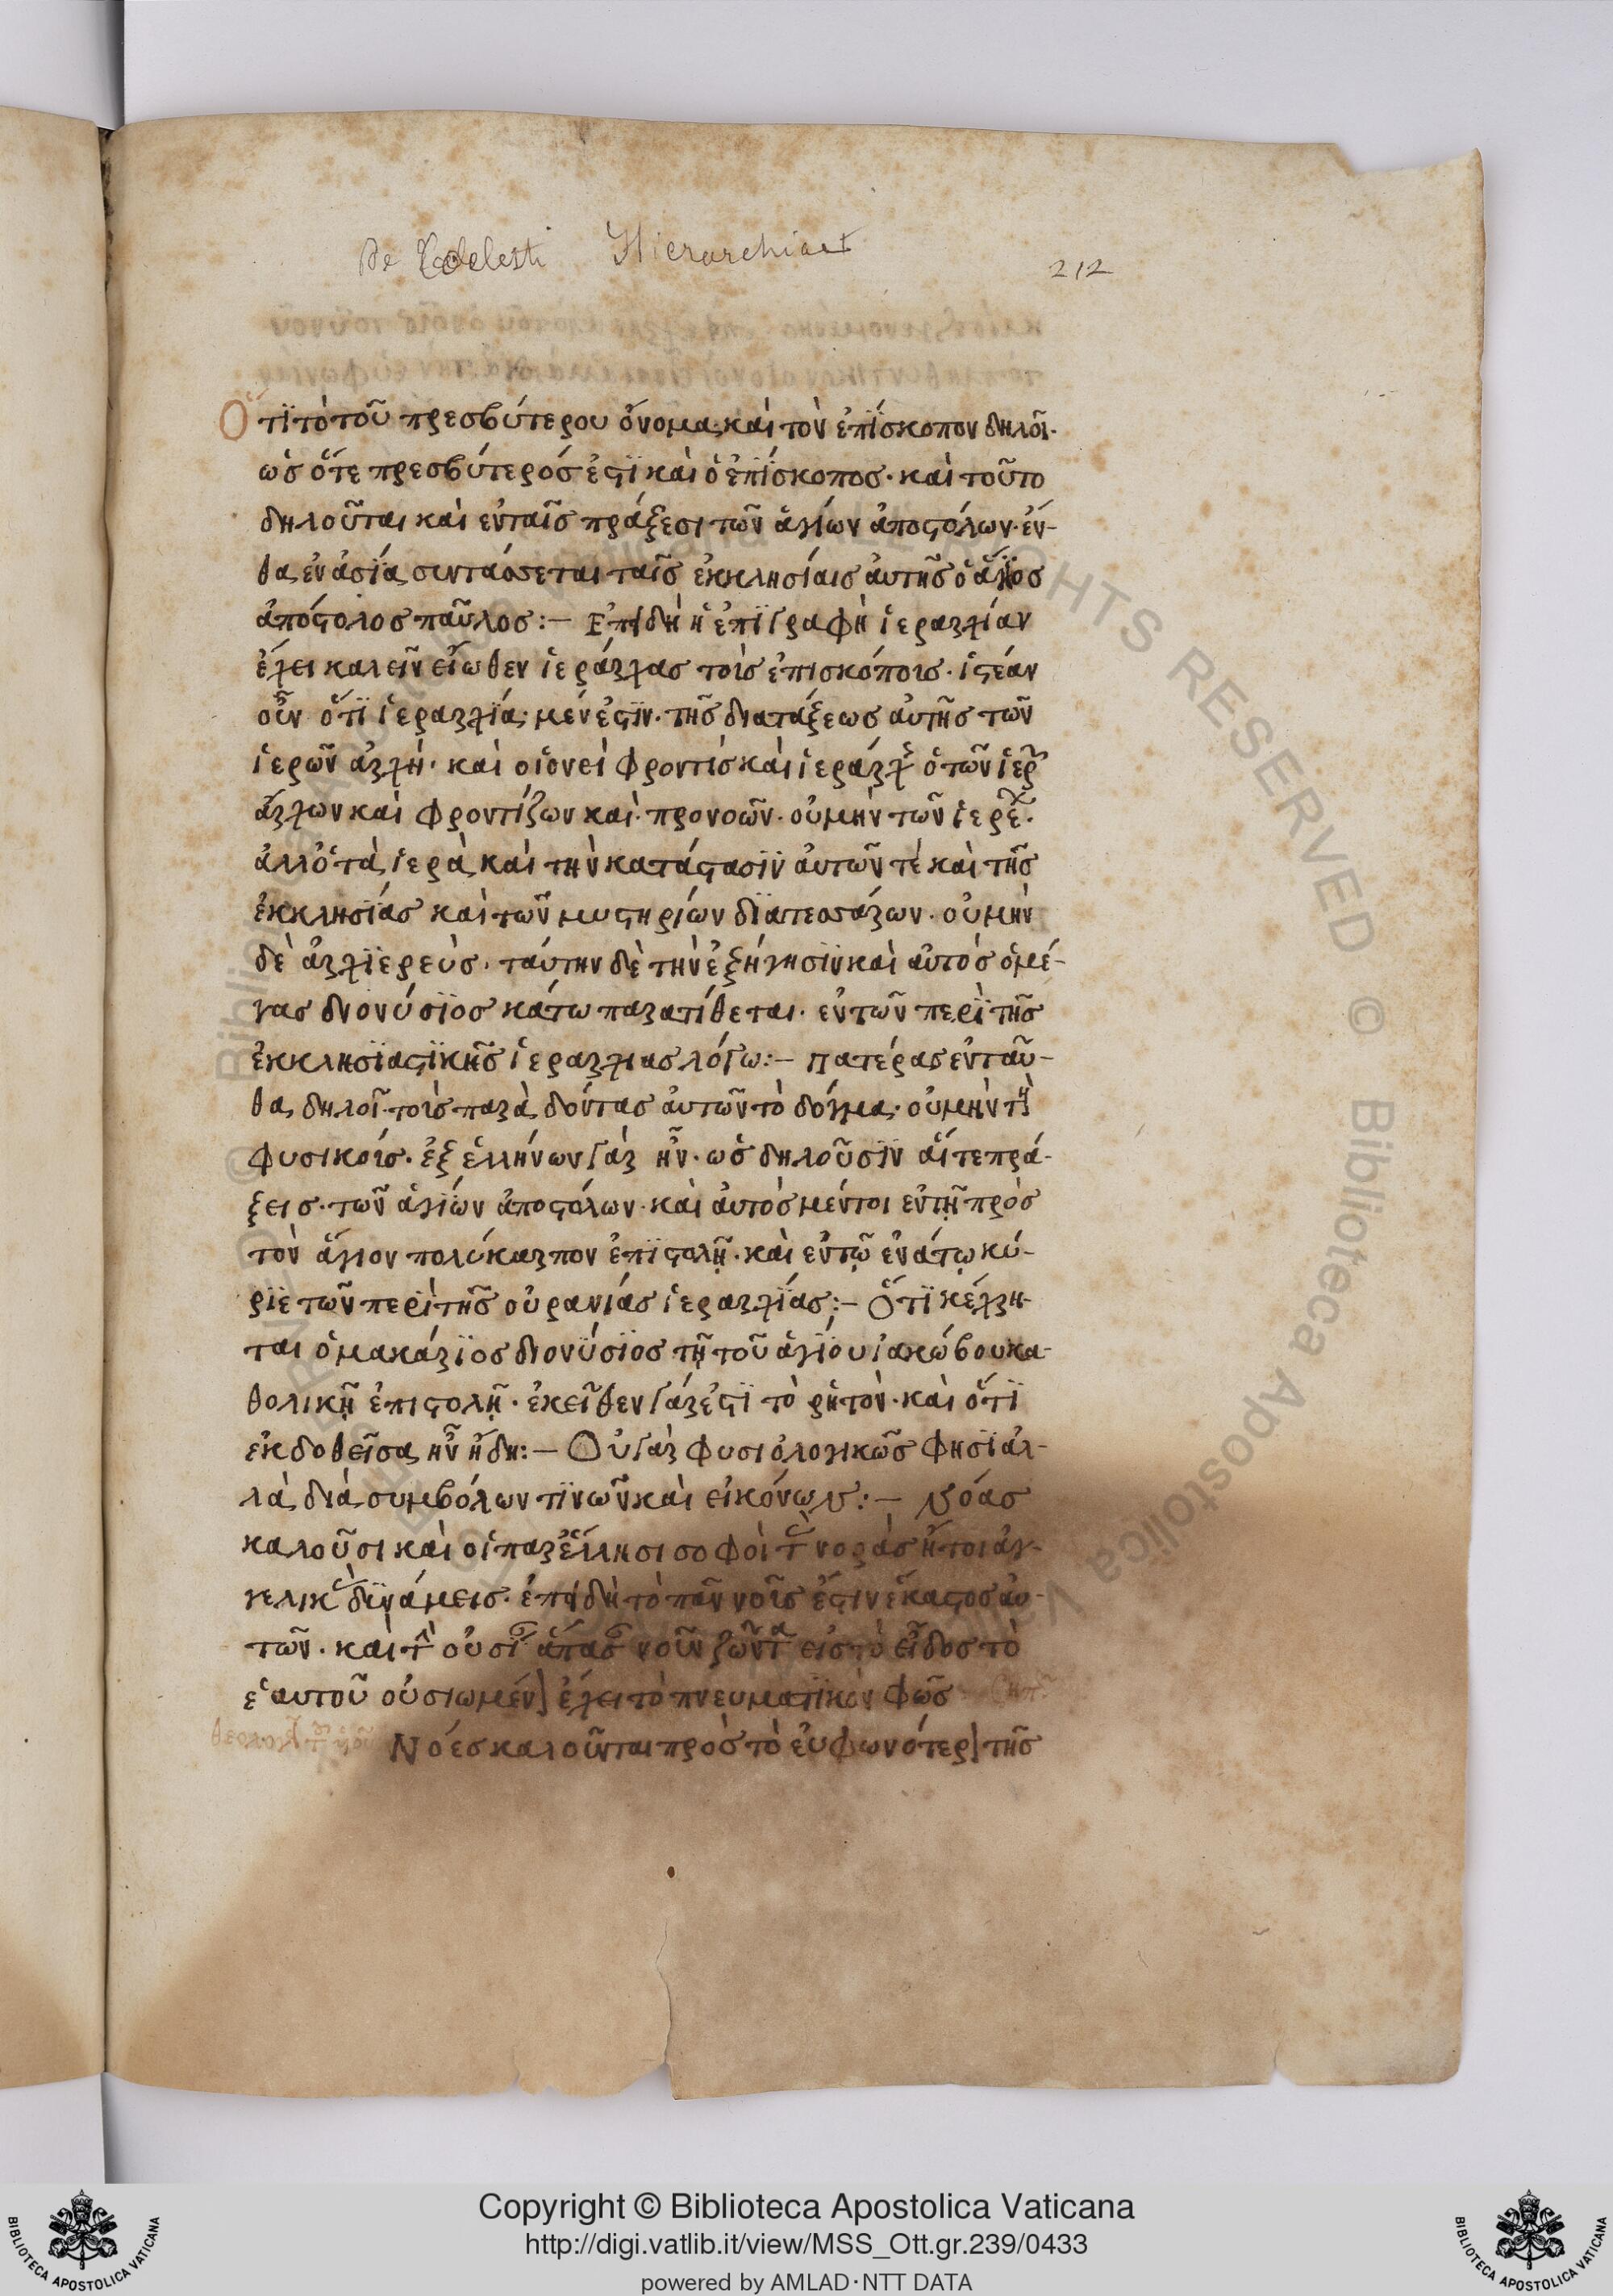 De Coelesti Hierarchia
212
Ὅτϊ τὸ τοῦ πρεσβύτερου ὄνομα· καὶ τὸν ἐπΐσκοπον δηλοῖ·
ὡς ὅτε πρεσβύτερός ἐστϊ καὶ ὁ ἐπΐσκοπος· καὶ τοῦτο
δηλοῦται καὶ ἐν ταῖς πράξεσι τῶν ἁγίων ἀποστόλων· ἔν-
θα ἐν ἀσίᾳ συντάσσεται ταῖς ἐκκλησίαις αὐτῆς ὁ ἅγϊος
ἀπόστολος παῦλος:— Επϊδὴ ἡ ἐπϊγραφὴ ἱεραρχίαν
ἔχει καλεῖν εἴωθεν ἱεράρχας τοὶς ἐπισκόποις· ἰστέαν
οὖν ὅτϊ ἱεραρχΐα μέν ἐστϊν· τῆς διατάξεως αὐτῆς τῶν
ἱερῶν ἀρχή· καὶ οἱονεὶ φροντὶς καὶ ἱεράρχ ὁ τῶν ἱερ
ἄρχων καὶ φροντίζων καὶ προνοῶν· οὐ μὴν τῶν ἱερέ·
ἀλλ ὁ τὰ ἱερὰ καὶ τὴν κατάστασϊν αὐτῶν τὲ καὶ τῆς
ἐκκλησΐας καὶ τῶν μυστηρίων δϊαπεοσάρων· οὐ μὴν
δὲ ἀρχϊερεὺς· ταύτην δὲ τὴν ἐξήγησϊν καὶ αὐτὸς ὁ μέ-
γας διονύσϊος κάτω παρατίθεται· ἐν τῶν περὶ τῆς
ἐκκλησϊαστϊκῆς ἱεραρχιας λόγω:— πατέρας ἐνταῦ-
θα δηλοῖ τοὶς παρὰ δόντας αὐτῶν τὸ δόγμα· οὐ μὴν τὴ
φυσικοὶς· ἐξ ἑλλήνων γὰρ ἦν· ὡς δηλοῦσϊν αἵ τε πρά-
ξεις· τῶν ἁγΐων ἀποστόλων· καὶ αὐτὸς μέντοι ἐν τῇ πρὸς
τὸν ἅγιον πολύκαρπον ἐπϊστολῇ· καὶ ἐν τῷ ἐνάτῳ κύ-
ρϊε τῶν περὶ τῆς οὐρανιάς ἱεραρχΐας:— Ὅτϊ κέχρη-
ται ὁ μακάρϊος διονΰσϊος τῇ τοῦ ἁγΐου ἰακώβου κα-
θολικῇ ἐπιστολῇ· ἐκεῖθεν γάρ ἐστϊ τὸ ῥητὸν· καὶ ὅτϊ
ἐκδοθεῖσα ἦν ἤδη:— Οὐ γὰρ φυσιολογικῶς φησϊ ἀλ-
λὰ διὰ συμβόλων τϊνῶν καὶ εἰκόνων:— Νόας
καλοῦσι καὶ οἱ παρ ἕλλησι σοφοὶ τ νοερὰς ἤτοι ἀγ-
γελικ δϊνάμεις· ἐπϊδὴ τὸ πᾶν νοῖς ἐστιν ἕκαστος αυ-
τῶν· καὶ τ οὐσί ἅπας νοῦν ζῶντ εἰς τὸ εἶδος τὸ
ἑαυτοῦ οὐσιωμέν ἔχει τὸ πνευματϊκὸν φῶς
Νόες καλοῦνται πρὸς τὸ εὐφωνότερ τῆς
Copyright © Biblioteca Apostolica Vaticana
http://digi.vatlib.it/view/MSS_Ott.gr.239/0433
powered by AMLAD·NTT DATA